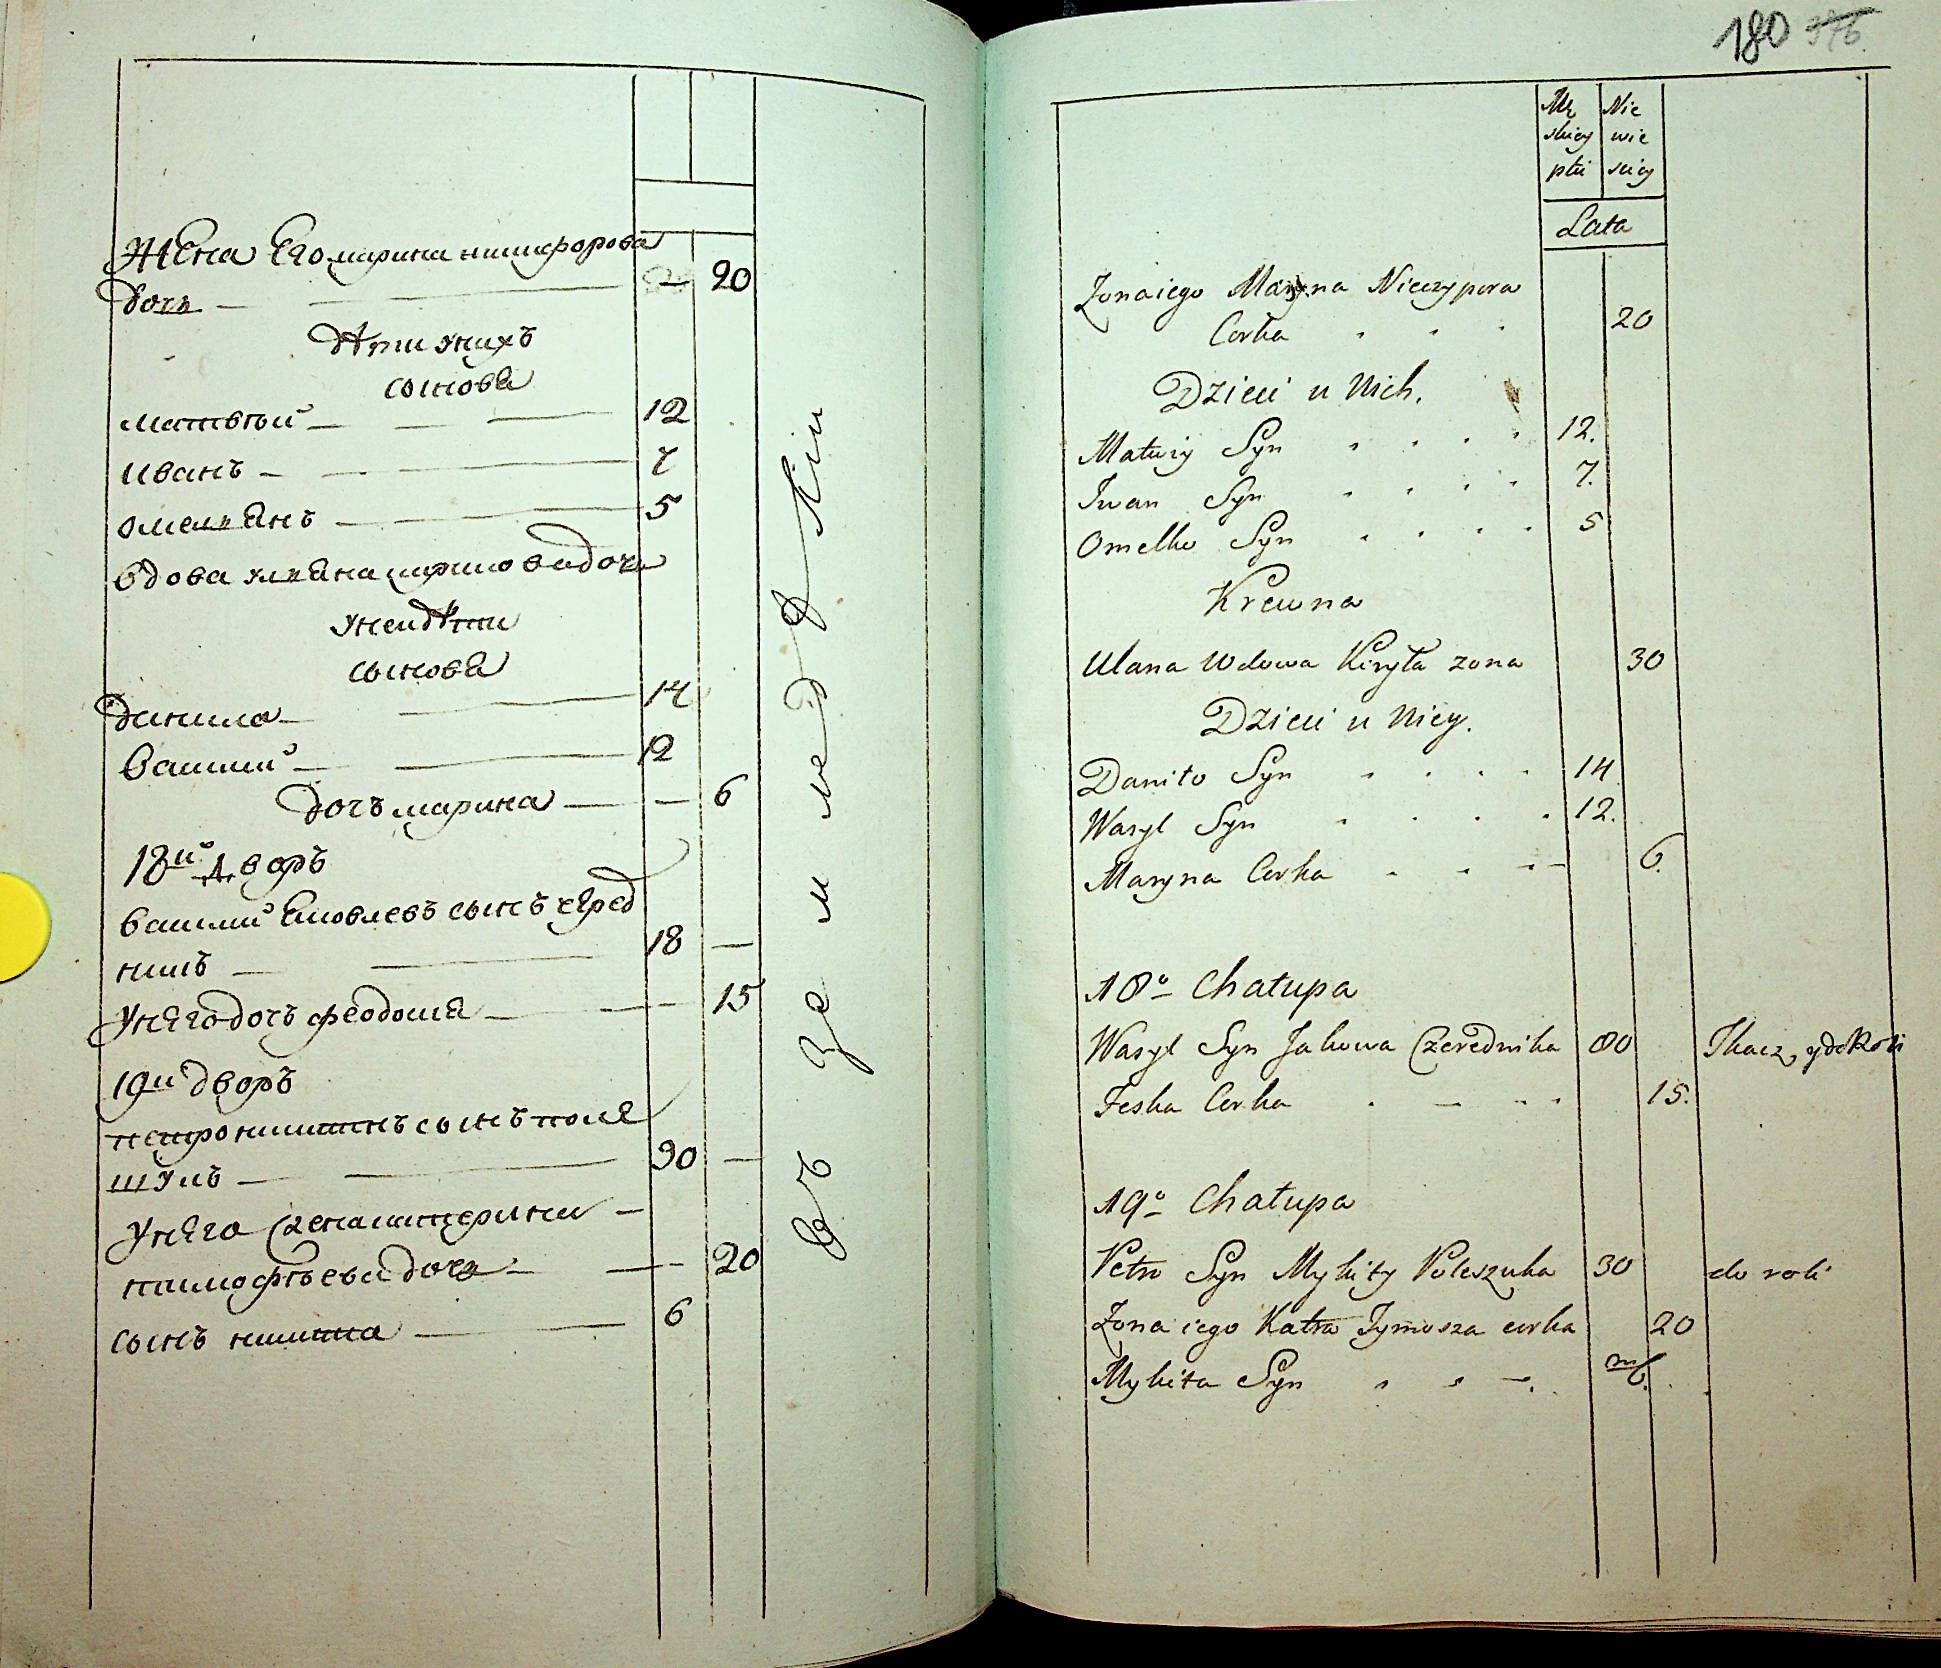 Жена Его марина никифорова
дочь — — — 20
Дѣти унихъ
сынове
матвѣй — — — 12
иванъ — — — 7
омелянъ — — 5
вдова уляна кирилова дочь
унеи дѣти
сынове
данило — — 14
василий — — 12
дочъ марина — — 6
18й дворъ
василий яковлевъ сынъ черед
никъ — — 18 —
унего дочъ феодосия — — 15
19й дворъ
петро никитинъ сынъ поле
шукъ — — 30 —
унего жена катерина —
тимофѣева дочь — — 20
сынъ никита — 6
въ земледѣлии
180 376
Mę Nie
skiey wie
płci sciey
Lata
Zona iego Maryna Nieczypora
Corka 20
Dzieci u Nich.
Matwiy Syn 12.
Iwan Syn 7.
Omelko Syn 5
Krewna
Ulana Wdowa Kiryła zona 30
Dzieci u Niey.
Daniło Syn 14
Wasyl Syn 12.
Maryna Corka 6.
18o Chałupa
Wasyl Syn Jakowa Czerednika 80 Tkacz, y do Roli
Feska Corka 15.
19o Chałupa
Petro Syn Mykity Poleszuka 30 do roli
Zona iego Katra Tymosza corka 20
Mykita Syn 6.